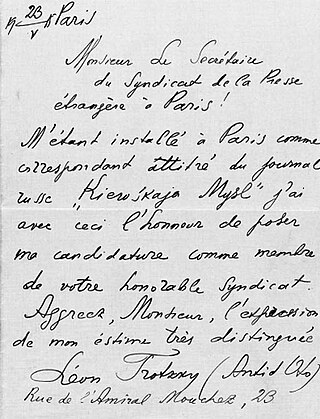 19 23/V 15 Paris
Monsieur Le Secrétaire
du Syndicat de la Presse
étrangère à Paris!
M'étant installé à Paris comme
correspondant attitré du journal
russe "Kiewskaja Mysl" j'ai
avec ceci l'honneur de poser
ma candidature comme membre
de votre honorable syndicat.
Aggreez, Monsieur, l'expression
de mon éstime très distinguée
Léon Trotzky (Antid Oto)
Rue de l'Amiral Mouchez, 23